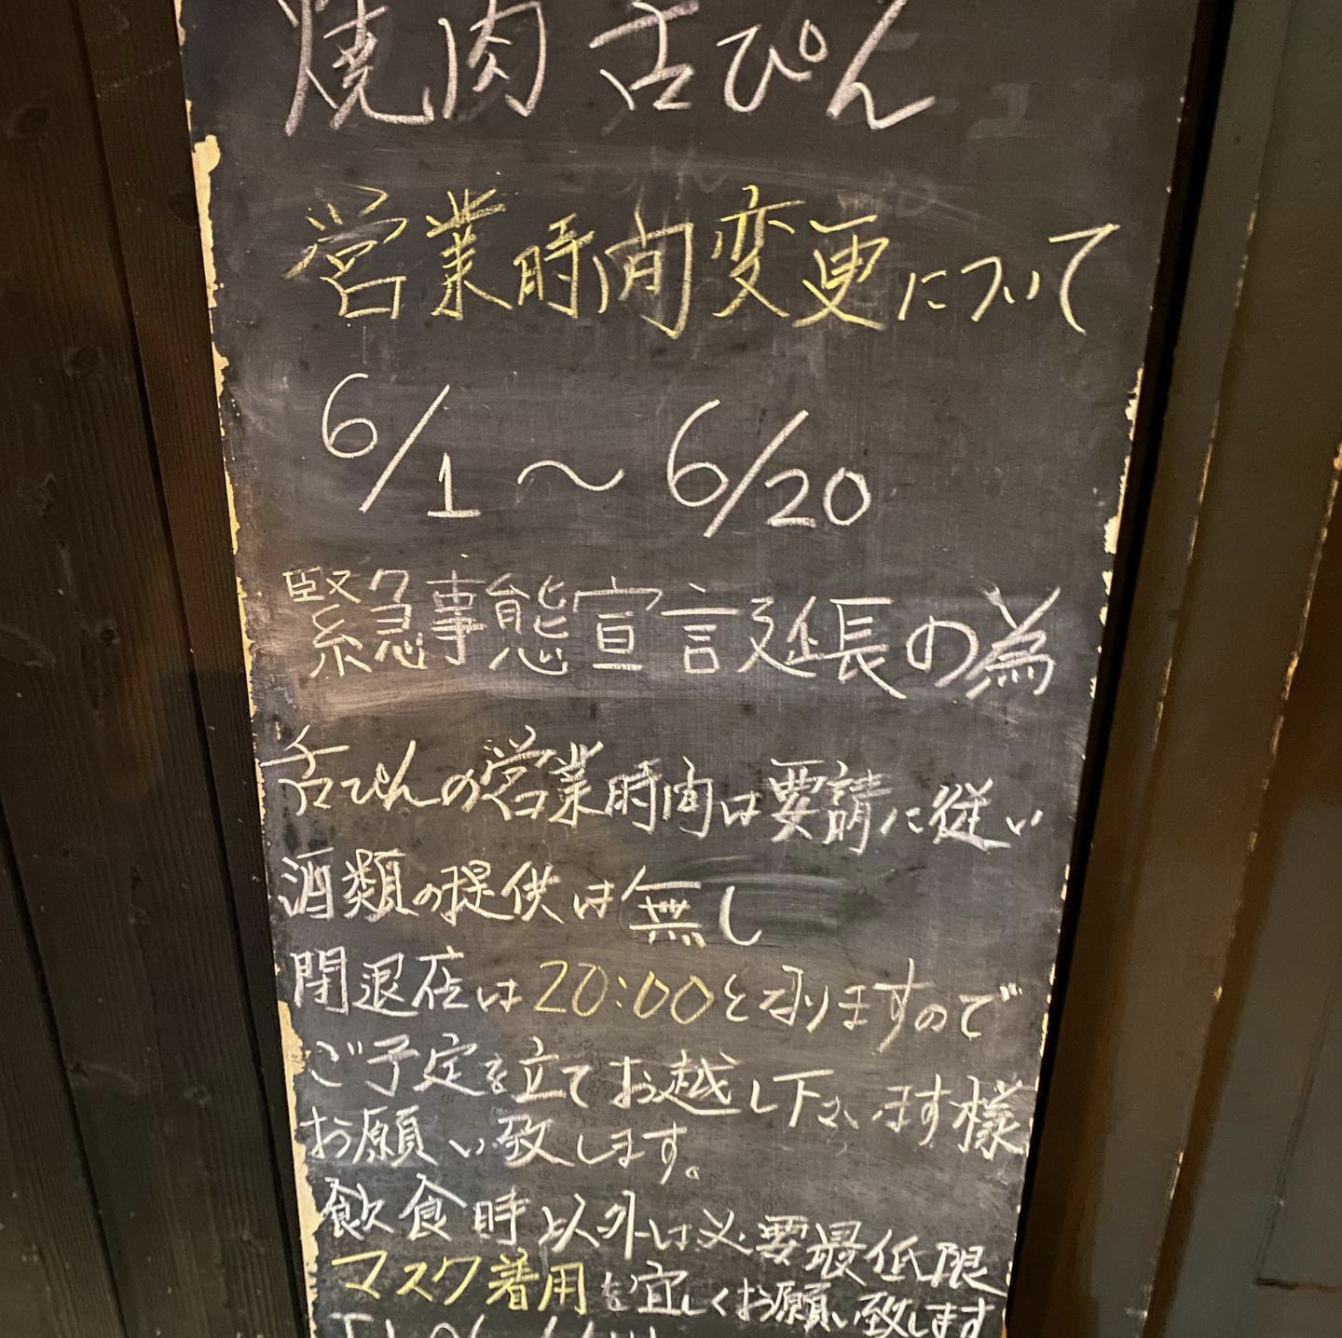 焼肉 舌ぴん
営業時間変更について
6/1〜6/20
緊急事態宣言延長の為
舌ぴんの営業時間は要請に従い
酒類の提供は無し
閉退店は20:00と承りますので
ご予定を立てお越し下さいます様
お願い致します。
飲食時以外は必要最低限
マスク着用を宜しくお願い致します